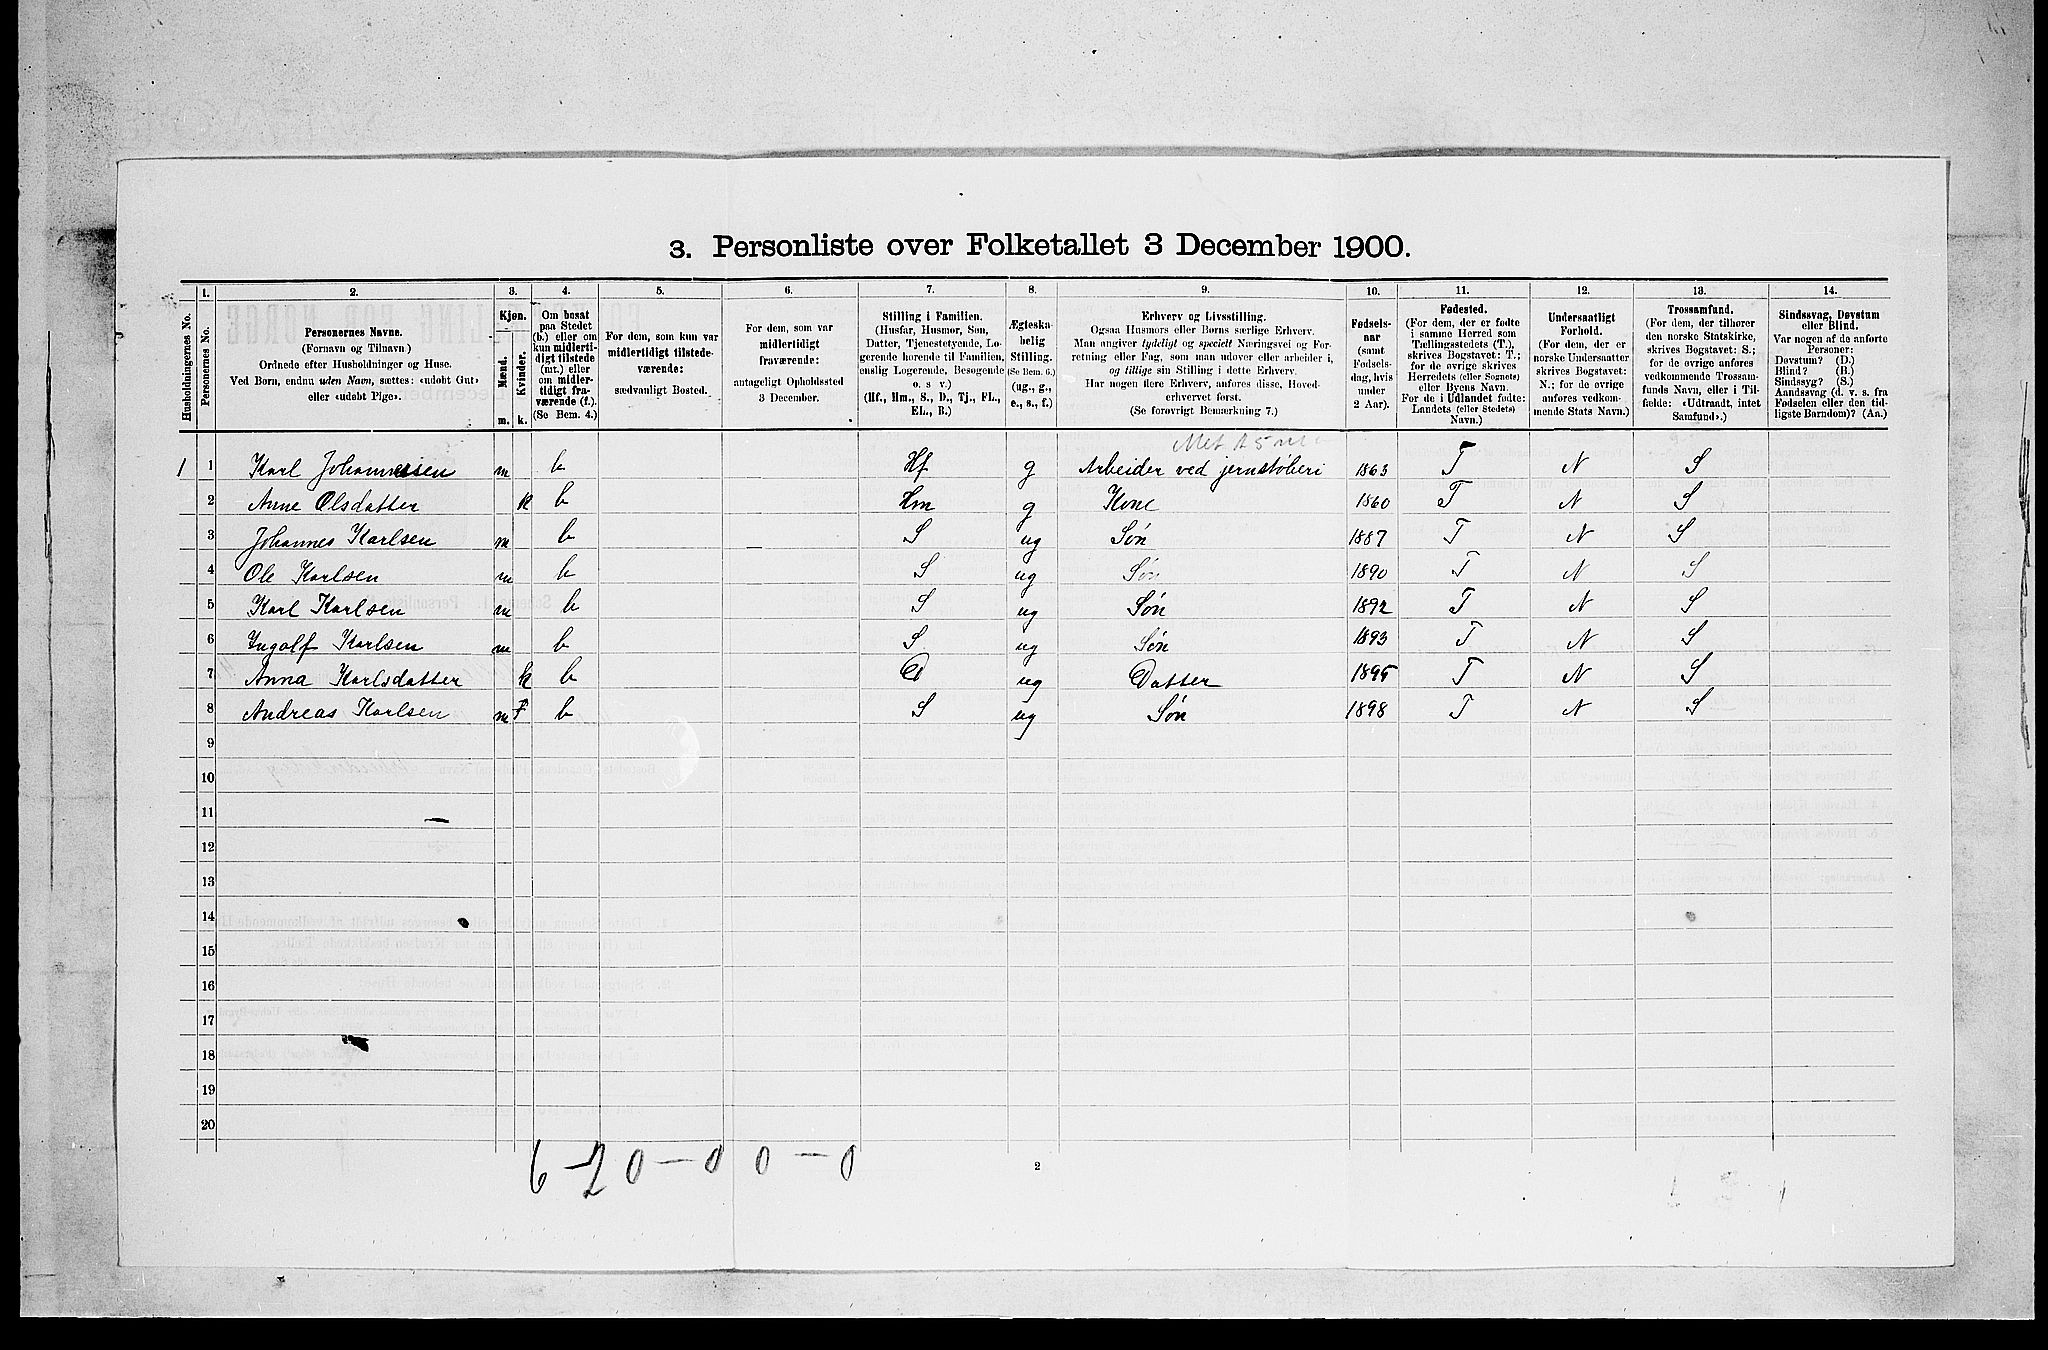 3. Personliste over Folketallet 3 December 1900.
Husholdningernes No.
1.
Personernes No.
2.
Personernes Navne.
(Fornavn og Tilnavn)
Ordnede efter Husholdninger og Huse.
Ved Børn, endnu uden Navn, sættes: «udøbt Gut»
eller «udøbt Pige».
3.
Kjøn.
Mænd.
m.
Kvinder.
k.
4.
Om bosat
paa Stedet
(b.) eller om
kun midlerti-
digt tilstede
(mt.) eller
om midler-
tidigt fra-
værende (f.).
(Se Bem. 4.)
5.
For dem, som kun var
midlertidigt tilstede-
værende:
sædvanligt Bosted.
6.
For dem, som var
midlertidigt
fraværende:
antageligt Opholdssted
3 December.
7.
Stilling i Familien.
(Husfar, Husmor, Søn,
Datter, Tjenestetyende, Lo-
gerende hørende til Familien,
enslig Logerende, Besøgende
o. s v.)
(Hf., Hm., S., D., Tj., FL.,
EL., B.)
8.
Ægteska-
belig
Stilling.
(Se Bem. 6.)
(ug., g.,
e., s., f.)
9.
Erhverv og Livsstilling.
Ogsaa Husmors eller Børns særlige Erhverv.
Man angiver tydeligt og specielt Næringsvei og For-
retning eller Fag, som man udøver eller arbeider i,
og tillige sin Stilling i dette Erhverv.
Har nogen flere Erhverv, anføres disse, Hoved-
erhvervet først.
(Se forøvrigt Bemærkning 7.)
10.
Fødsels-
aar
(samt
Fødsels-
dag, hvis
under
2 Aar).
11.
Fødested.
(For dem, der er fødte
i samme Herred som
Tællingsstedets (T.),
skrives Bogstavet: T.;
for de øvrige skrives
Herredets (eller Sognets)
eller Byens Navn.
For de i Udlandet fødte:
Landets (eller Stedets)
Navn.)
12.
Undersaatligt
Forhold.
(For dem, der er
norske Undersaatter
skrives Bogstavet:
N.; for de øvrige
anføres vedkom-
mende Stats Navn.)
13.
Trossamfund.
(For dem, der tilhører
den norske Statskirke,
skrives Bogstavet: S.;
for de øvrige anføres
vedkommende Trossam-
funds Navn, eller i Til-
fælde: «Udtraadt, intet
Samfund».)
14.
Sindssvag, Døvstum
eller Blind.
Var nogen af de anførte
Personer:
Døvstum? (D.)
Blind? (B.)
Sindssyg? (S.)
Aandssvag (d. v. s. fra
Fødselen eller den tid-
ligste Barndom)? (Aa.)
1 1 Karl Johannessen m b Hf g Arbeider ved jernstøberi 1863 T N S
2 Anne Olsdatter k b Hm g Kone 1860 T N S
3 Johannes Karlsen m b S ug Søn 1887 T N S
4 Ole Karlsen m b S ug Søn 1890 T N S
5 Karl Karlsen m b S ug Søn 1892 T N S
6 Ingolf Karlsen m b S ug Søn 1893 T N S
7 Anna Karlsdatter k b D ug Datter 1895 T N S
8 Andreas Karlsen m b S ug Søn 1898 T N S
9
10
11
12
13
14
15
16
17
18
19
20
2